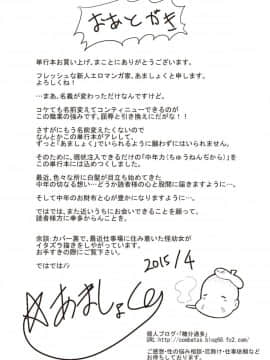 おあとがき
単行本お買い上げ、まことにありがとうございます。
フレッシュな新人エロマンガ家、あましょくと申します。
よろしくね！
…まあ、名義が変わっただけなんですけど。
コケても名前変えてコンティニューできるのが
この職業の強みです。屈辱と引き換えにだがな！！
さすがにもう名前変えたくないので
なんとかこの単行本がアレして、
ずっと「あましょく」でいられるように願わずにはいられません。
そのために、現状注入できるだけの「中年力（ちゅうねんぢから）」を
この単行本には込めつくしました。
最近、色々な所に白髪が目立ち始めてきた
中年の切なる想い…どうか読者様の心と股間に届きますように…。
そして中年のお財布と心が少しでも豊かになりますように…。
ではでは、また近いうちにお会いできることを願って、
諸読者方に幸多からんことを。
余談：カバー裏で、最近仕事場に住み着いた怪幼女が
イタズラ描きをしやがっています。
お手すきの際にご覧下さい。
ではでは
2015/4
あましょく
個人ブログ・「糖分過多」
URL http://combatsa.blog66.fc2.com/
ご感想・性の悩み相談・恋助け・仕事依頼など